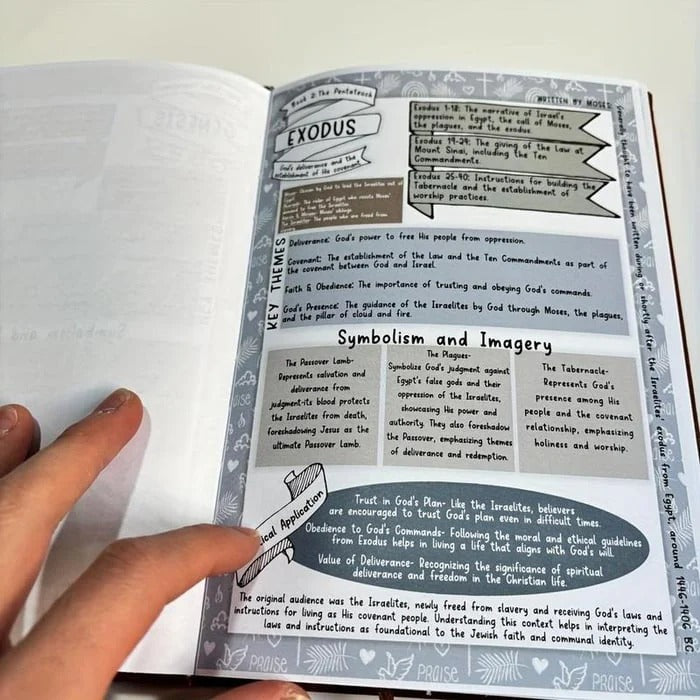 Book 2: The Pentateuch
EXODUS
God's deliverance and the
establishment of His covenant.
WRITTEN BY MOSES
Exodus 1-18: The narrative of Israel's
oppression in Egypt, the call of Moses,
the plagues, and the exodus.
Exodus 19-24: The giving of the Law at
Mount Sinai, including the Ten
Commandments.
Exodus 25-40: Instructions for building the
Tabernacle and the establishment of
worship practices.
Moses: Chosen by God to lead the Israelites out of
Egypt.
Pharaoh: The ruler of Egypt who resists Moses'
demand to free the Israelites.
Aaron & Miriam: Moses' siblings.
The Israelites: The people who are freed from
KEY THEMES
Deliverance: God's power to free His people from oppression.
Covenant: The establishment of the Law and the Ten Commandments as part of
the covenant between God and Israel.
Faith & Obedience: The importance of trusting and obeying God's commands.
God's Presence: The guidance of the Israelites by God through Moses, the plagues,
and the pillar of cloud and fire.
Symbolism and Imagery
The Passover Lamb-
Represents salvation and
deliverance from
judgment-its blood protects
the Israelites from death,
foreshadowing Jesus as the
ultimate Passover Lamb.
The Plagues-
Symbolize God's judgment against
Egypt's false gods and their
oppression of the Israelites,
showcasing His power and
authority. They also foreshadow
the Passover, emphasizing themes
of deliverance and redemption.
The Tabernacle-
Represents God's
presence among His
people and the covenant
relationship, emphasizing
holiness and worship.
ical Application
Trust in God's Plan- Like the Israelites, believers
are encouraged to trust God's plan even in difficult times.
Obedience to God's Commands- Following the moral and ethical guidelines
from Exodus helps in living a life that aligns with God's will.
Value of Deliverance- Recognizing the significance of spiritual
deliverance and freedom in the Christian life.
The original audience was the Israelites, newly freed from slavery and receiving God's laws and
instructions for living as His covenant people. Understanding this context helps in interpreting the
laws and instructions as foundational to the Jewish faith and communal identity.
Generally thought to have been written during or shortly after the Israelites' exodus from Egypt, around 1446-1406 BC
PRAISE
PRAISE
PRAISE